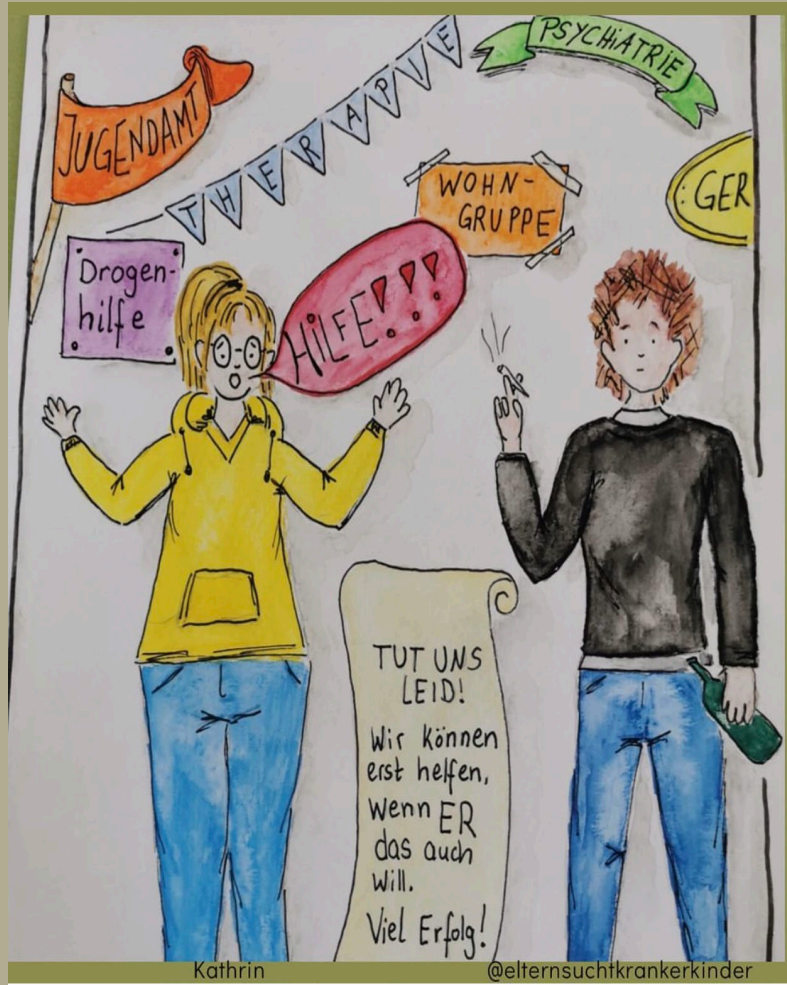 JUGENDAMT
THERAPIE
PSYCHiATRIE
WOHN-
GRUPPE
:GER
Drogen-
hilfe
HiLFE!!!
TUT UNS
LEID!
Wir können
erst helfen,
wenn ER
das auch
will.
Viel Erfolg!
Kathrin
@elternsuchtkrankerkinder